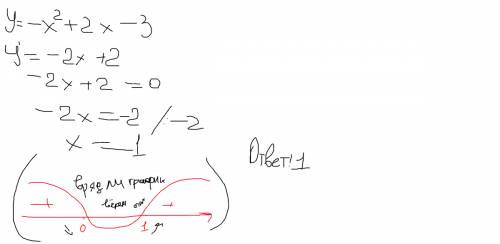 y=-x²+2x-3
y'=-2x+2
-2x+2=0
-2x=-2 /-2
x=1
Ответ:1
график
+ +
0 1